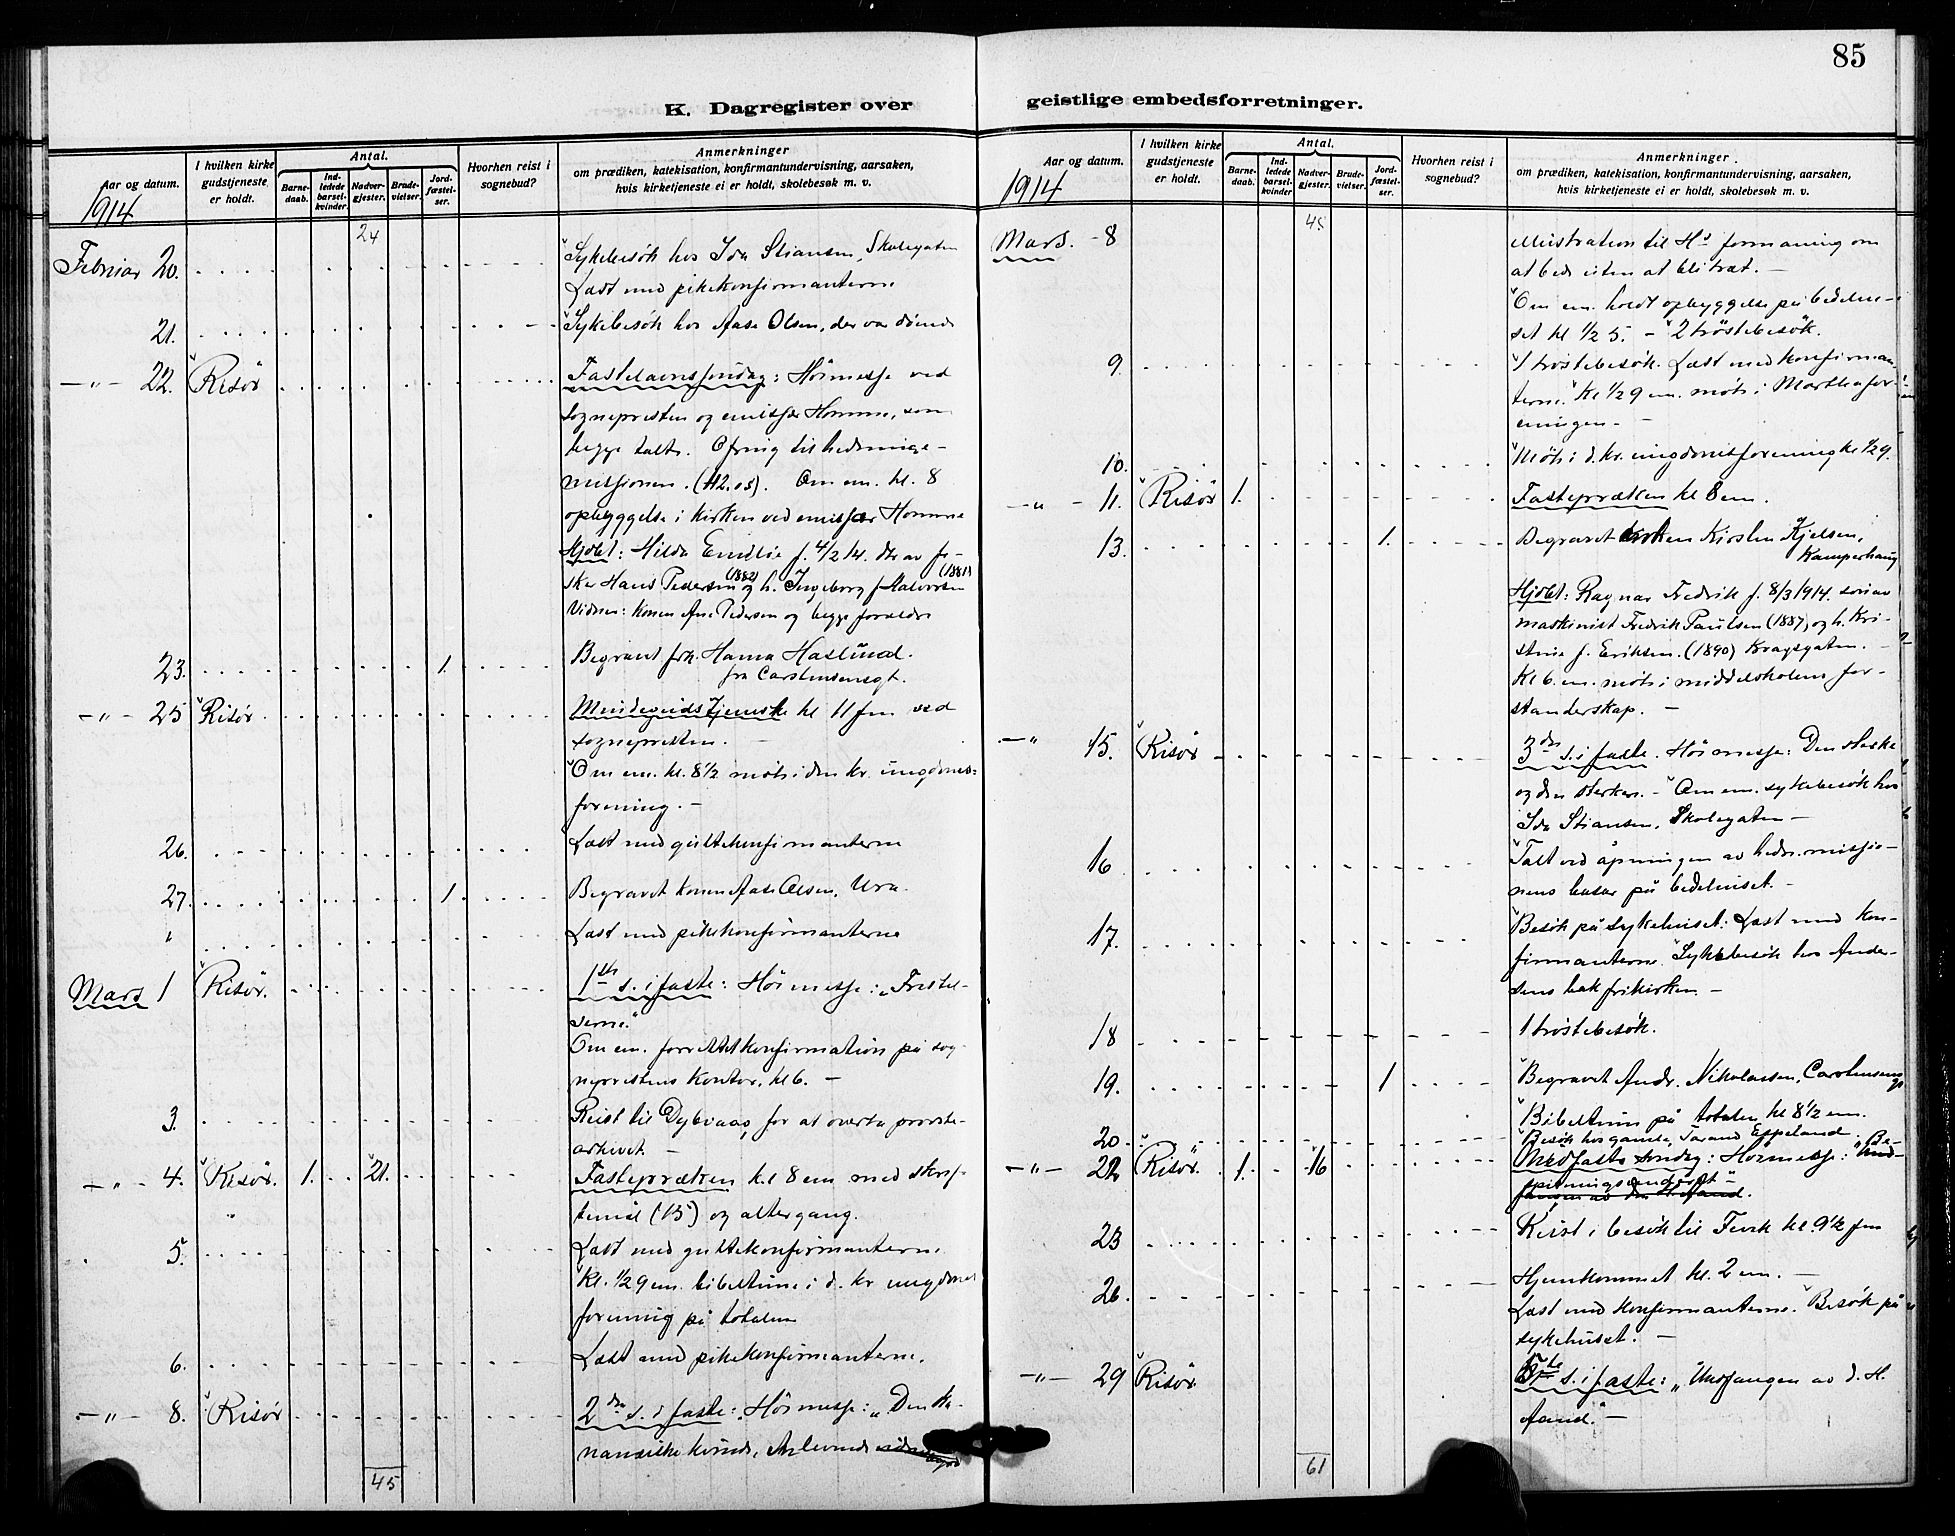 85
K. Dagregister over geistlige embedsforretninger.
Aar og datum.
1914
I hvilken kirke gudstjeneste er holdt.
Antal.
Barnedaab.
Indledede barselkvinder
Nadvergjester.
Brudevielser.
Jordfæstelser.
Hvorhen reist i sognebud?
Anmerkninger
om prædiken, katekisation, konfirmantundervisning, aarsaken,
hvis kirketjeneste ei er holdt, skolebesøk m. v.
24
Februar 20. Sykebesök hos Ida Stiansen, Skolegaten
Læst med pikekonfirmanterne
21. Sykebesök hos Aase Olsen, der var döende
-"- 22. Risör Fastelavnssöndag: Höimesse ved
sognepresten og emissær Homme, som
begge talte. Ofring til hedninge-
missionen. (112.05). Om em. kl. 8
opbyggelse i kirken ved emissær Homme
Hjdbt: Hilda Emilie f. 4/2 14. dtr av fi-
sker Hans Pedersen (1882) og h. Ingeborg f Halvorsen (1881)
Vidner: Konen Ane Pedersen og begge forældre
23. 1. Begravet frk. Hanna Haslund.
fra Carstensensgt.
-"- 25 Risör Messegudstjeneste kl 11 fm ved
sognepresten. -
Om em. kl. 8½ möte i den kr. ungdoms-
forening. -
26. Læst med guttekonfirmanterne
27. 1. Begravet konen Aase Olsen, Ura.
" Læst med pikekonfirmanterne
Mars 1 Risör. 1ste s. i faste: Höimesse: "Fristel-
serne."
Om em. forrettet konfirmation på sog-
neprestens kontor, kl 6. -
3. Reist til Dybvaag for at overta provste-
arkivet. -
-"- 4. Risör. 1. 21. Fasteprædken kl 8 em med skrif-
temål (15) og altergang.
5. Læst med guttekonfirmanterne.
Kl. ½9 em. bibeltime i d. kr. ungdoms
forening på totalen
6. Læst med pikekonfirmanterne.
-"- 8. Risör 2den s. i faste: Höimesse: "Den ka-
nanæiske kvinde.
45
Aar og datum.
1914
I hvilken kirke gudstjeneste er holdt.
Antal.
Barnedaab.
Indledede barselkvinder
Nadvergjester.
Brudevielser.
Jordfæstelser.
Hvorhen reist i sognebud?
Anmerkninger.
om prædiken, katekisation, konfirmantundervisning, aarsaken,
hvis kirketjeneste ei er holdt, skolebesøk m. v.
Mars. - 8 45 illustration til Hs formaning om
at bede uten at bli træt. -
Om em. holdt opbyggelse på bedehu-
set kl ½ 5. - 2 tröstebesök.
9. 1 tröstebesök. Læst med konfirman-
terne. Kl ½9 em. möte i Marthafor-
eningen. -
10. Möte i d. kr. ungdomsforening kl ½9.
-"- 11. Risör 1. Fasteprædken kl 8 em.
13. 1. Begravet enken Kirsten Kjelsen,
Kamperhaug
Hjdbt: Ragnar Fredrik f. 8/3 1914. sön av
maskinist Fredrik Paulsen (1887) og h. Kri-
stine f. Eriksen. (1890) Kragsgaten. -
Kl 6. em. möte i middelskolens for-
standerskap. -
-"- 15. Risör 3die s. i faste. Höimesse: Den sterke
og den sterkere. - Om em. sykebesök hos
Ida Stiansen, Skolegaten -
16 Talt ved åpningen av hedn. missio-
nens basar på bedehuset. -
17. Besök på sykehuset. Læst med kon-
firmanterne. Sykebesök hos Ander-
sens bak frikirken. -
18 1 tröstebesök.
19. 1 Begravet Andr. Nikolaisen, Carstensensgt
Bibeltime på totalen kl 8½ em.
20. Besök hos gamle Tarand Eppeland
-"- 22 Risör. 1. 16 Midfaste söndag: Höimesse: "Be-
spisningsunderet"-
23 Reist i besök til Tvedt kl. 9½ fm
26. Hjemkommet kl. 2 em. -
Læst med konfirmanterne. Besök på
sykehuset. -
-"- 29 Risör 5te s. i faste: "Undfangen av d. H.
Aand." -
61